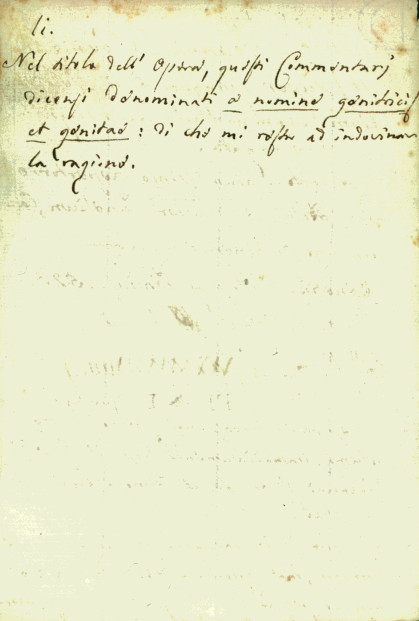 li.
Nel titolo dell' Opera, questi Commentarj
diconsi denominati a nomine genitricis
et genitae: di che mi resta ad indovinare
la ragione.